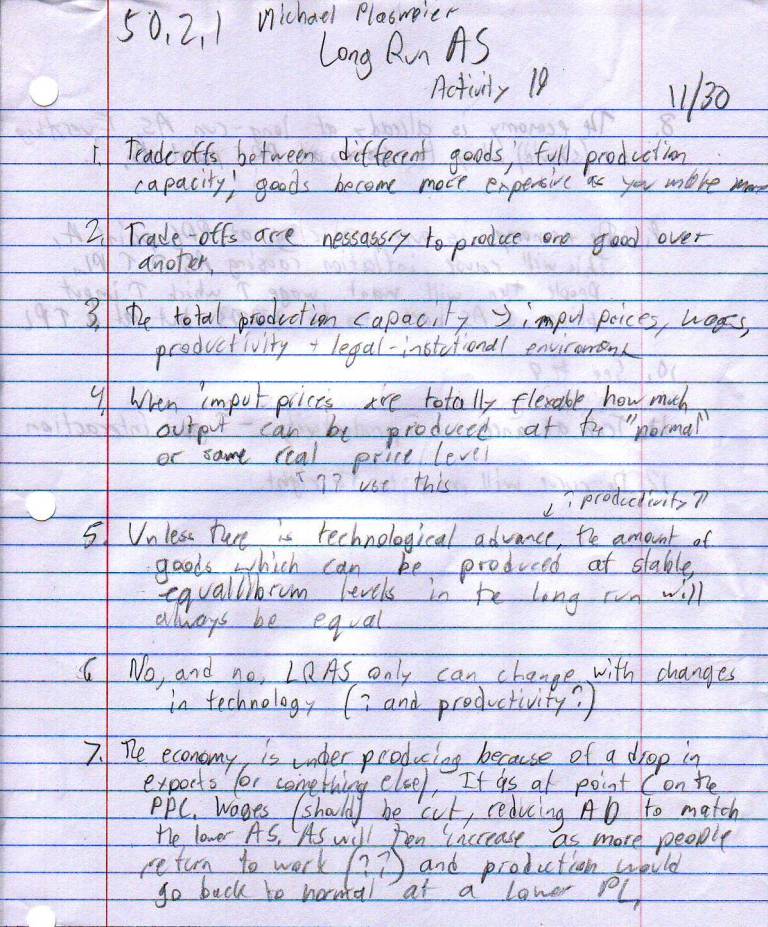 50,2,1 Michael Plasmeier
Long Run AS
Activity 19
11/30
1. Trade-offs between different goods; full production
capacity; goods become more expensive as you make more
2. Trade-offs are nessassry to produce one good over
another.
3. The total production capacity → imput prices, wages,
productivity + legal-instational enviroment
4. When imput prices are totally flexable, how much
output can be produced at the "normal"
or same real price level
↑ ?? use this
↓ ? productivity ?
5. Unless there is technological advance, the amount of
goods which can be produced at stable,
equallibrum levels in the long run will
always be equal
6 No, and no, LRAS only can change with changes
in technology (? and productivity?)
7. The economy is under producing because of a drop in
exports (or something else). It is at point C on the
PPC. Wages (should) be cut, reducing AD to match
the lower AS. AS will then increase as more people
return to work (??) and production would
go back to normal at a lower PL.